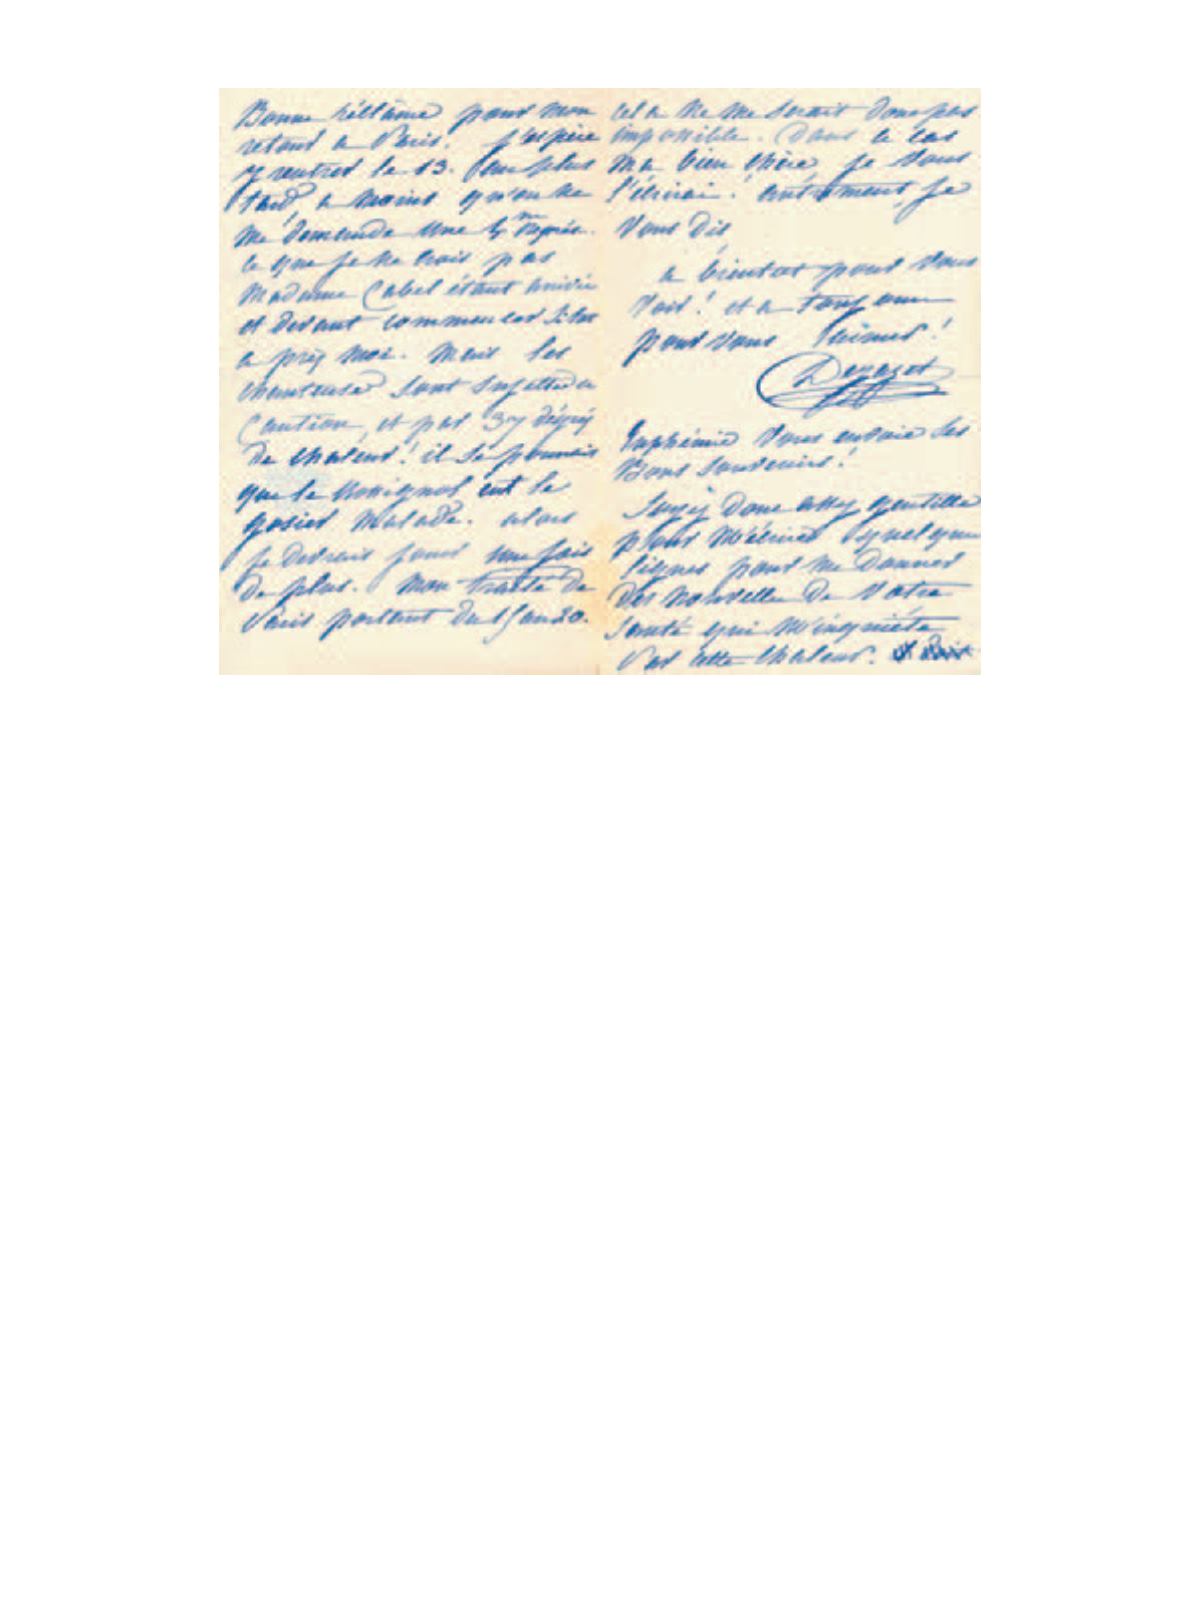 Bonne réclame pour mon
retour a Paris. j'espère
y rentrer le 13. au plus
tard a moins qu'on ne
me demande une 4me représ.
ce que je ne crois pas
Madame Cabel étant arrivée
et devant commencer sitot
a près moi. Mais les
chanteuses sont sujettes a
caution, et par 37 dégrés
de chaleur! il se pourrait
que le rossignol eut le
gosier malade. alors
je devrais jouer une fois
de plus. Mon traité de
Paris portant du 15 au 20.
cela ne me serait donc pas
impossible. Dans ce cas
ma bien chère, je vous
l'écrirai! autrement, je
vous dis
a bientot pour vous
voir! et a toujours
pour vous aimer!
Dejazet
Euphémie vous envoie ses
Bons souvenirs!
Soyez donc assez gentille
pour m'écrire quelques
lignes pour me donner
des nouvelles de votre
santé qui m'inquiète
par cette chaleur.